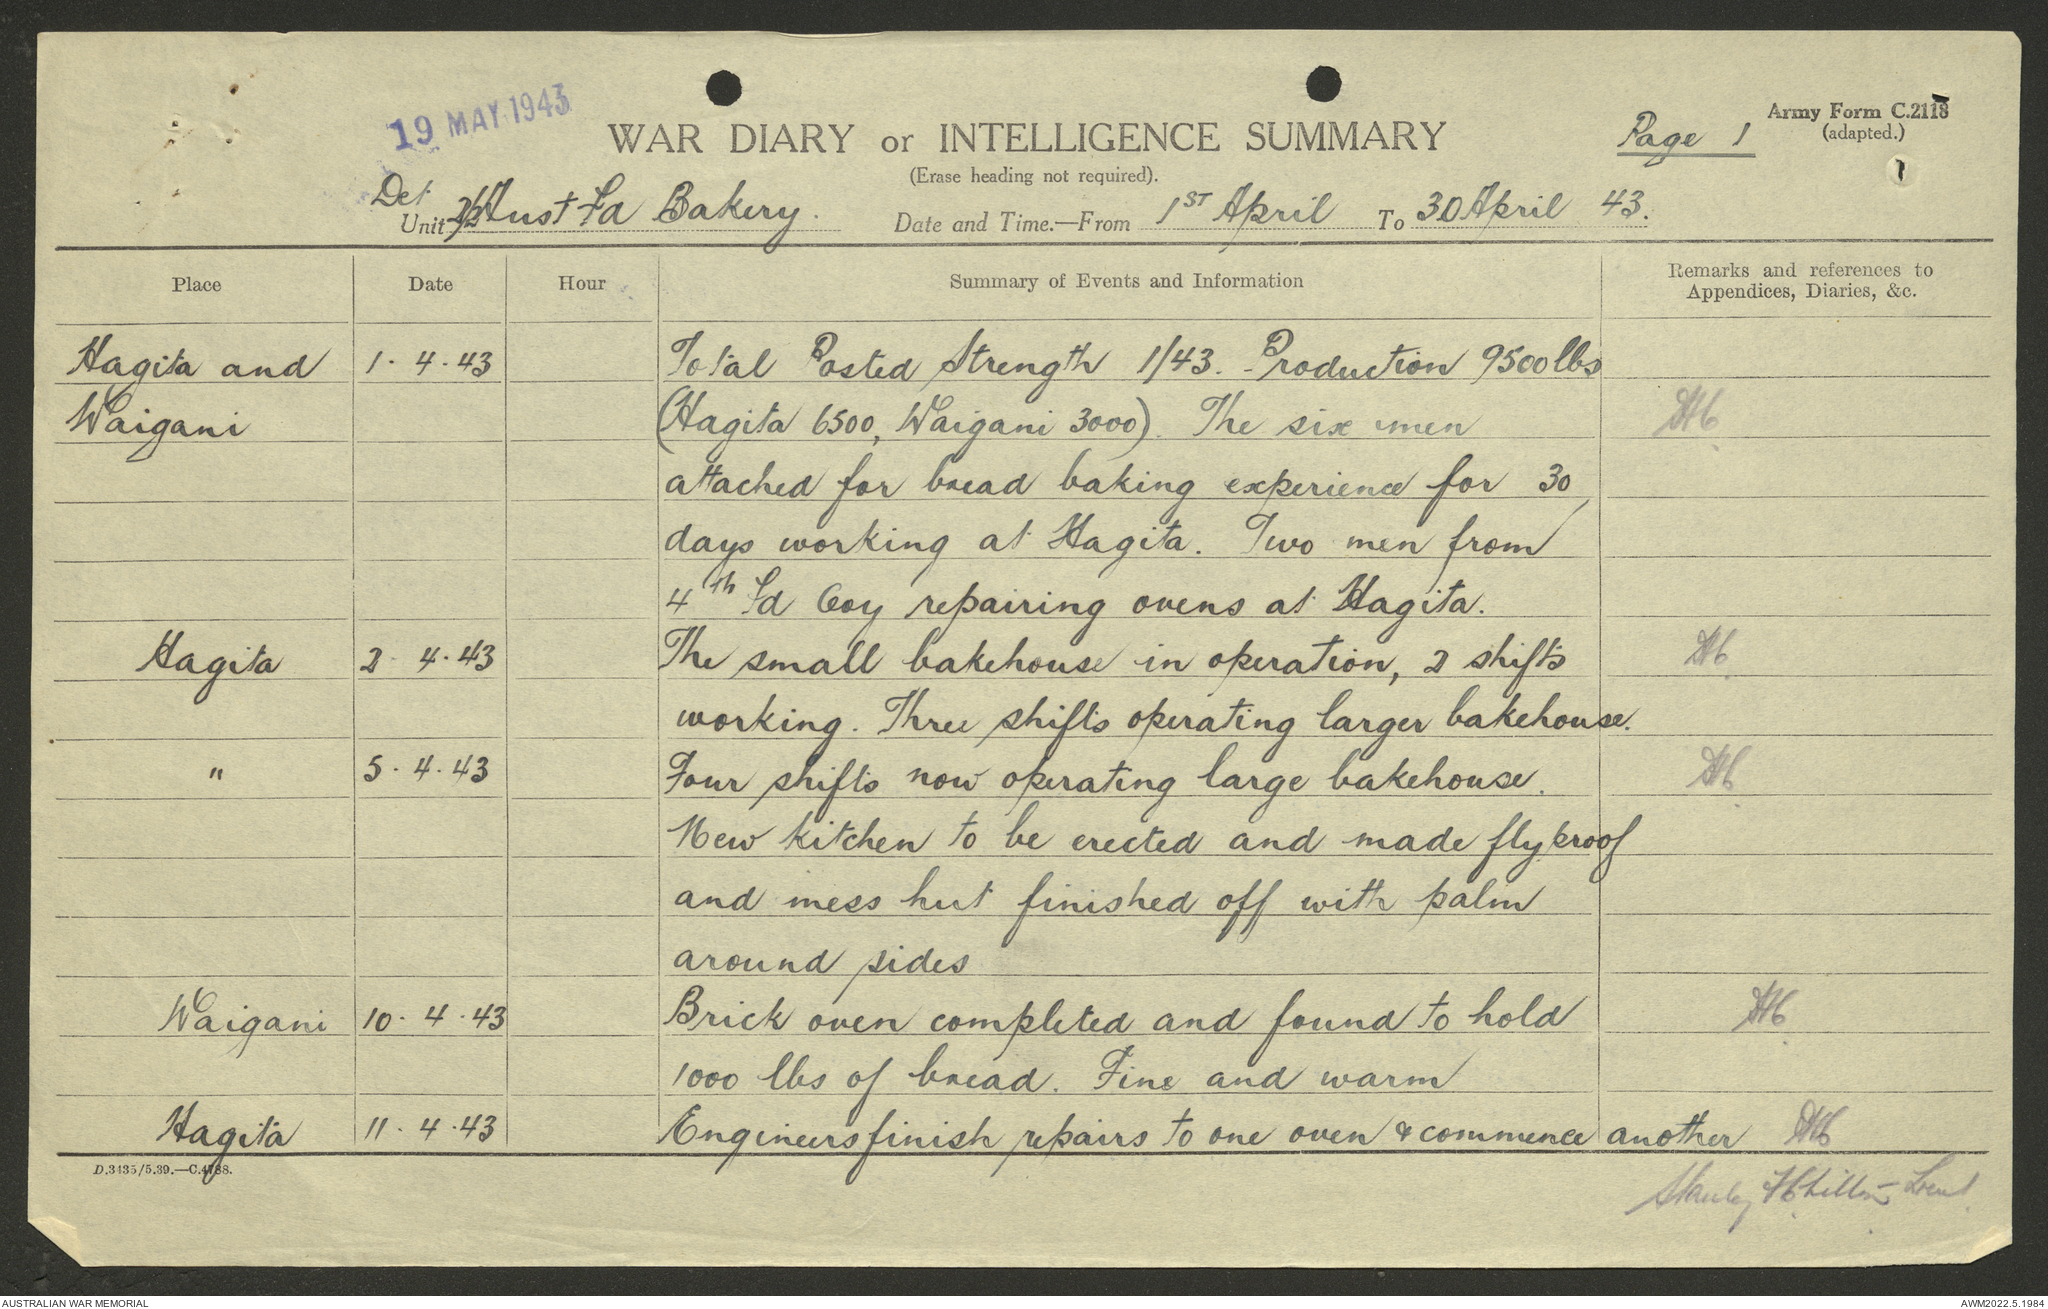 19 MAY 1943
WAR DIARY or INTELLIGENCE SUMMARY
Page 1
Army Form C.2118
(adapted.)
(Erase heading not required).
1
Det
Unit Aust Fd Bakery.
Date and Time.—From 1ST April To 30 April 43.
Place Date Hour Summary of Events and Information Remarks and references to
Appendices, Diaries, &c.
Hagita and 1. 4. 43 Total Posted Strength 1/43. Production 9500 lbs
Waigani (Hagita 6500, Waigani 3000). The six men
attached for bread baking experience for 30
days working at Hagita. Two men from
4th Fd Coy repairing ovens at Hagita.
Hagita 2. 4. 43 The small bakehouse in operation, 2 shifts
working. Three shifts operating larger bakehouse.
" 5. 4. 43 Four shifts now operating large bakehouse.
New kitchen to be erected and made flyproof
and mess hut finished off with palm
around sides
Waigani 10. 4. 43 Brick oven completed and found to hold
1000 lbs of bread. Fine and warm
Hagita 11. 4. 43 Engineers finish repairs to one oven & commence another
D.3435/5.39.—C.4788.
Stanley Lieut
AUSTRALIAN WAR MEMORIAL
AWM2022.5.1984